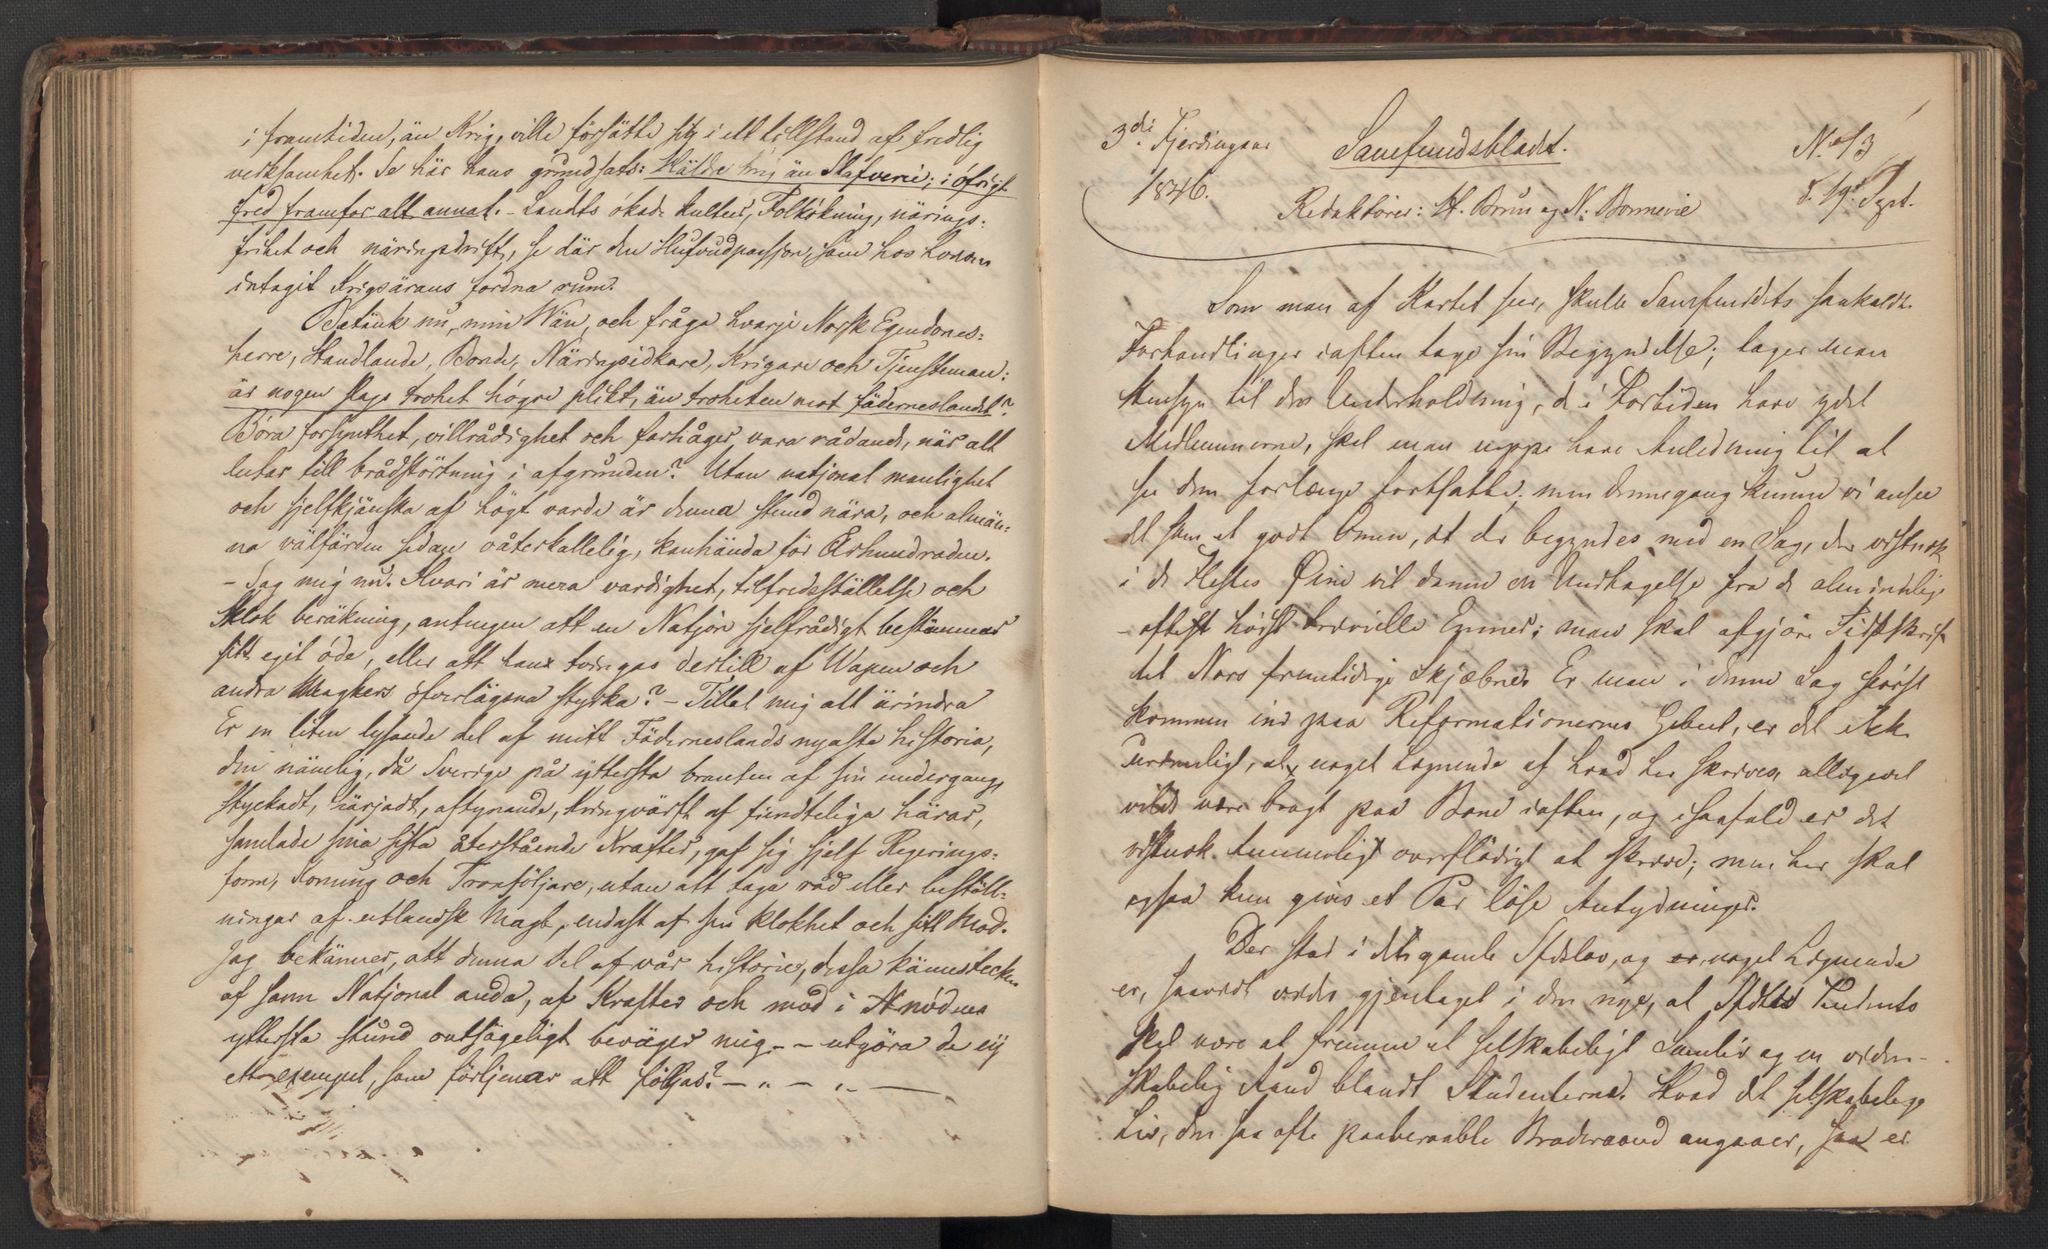 i framtiden, än Krig, ville försätte sig i ett tillstånd af fredlig
verksamhet. Se här hans grundsats: Hällre krig än Slafveri; i öfrigt
fred framfor alt annat. – Landts ökade kultur, Folkökning, närings-
frihet och näringsdrift, se där den Hufvudpassjon, som hos honom
intagit Krigsärans fordna rum.
Betänk nu, min Wän, och fråga hvarje Norsk Egendoms-
herre, Handlande, Bonde, Näringsidkare, Krigare och Tjensteman:
är nogen slags trohet högre plikt, än troheten mot fäderneslandet?
Böra forsynthet, villrådighet och farhåger, vara rådande, när alt
lutar till brådstörtning i afgrunden? Utan natjonal manlighet
och sjelfkjänska af högt varde är denna stund nära, och almän-
na välfärden sedan oåterkallelig, kanhända för Århundraden.
– Sag mig nu. Hvari är mera vardighet, tilfredsställelse och
klok beräkning, antingen att en Natjon sjelfrådigt bestämmer
sitt eget öde, eller att den tvingas dertill af Wapen och
andra Magters öfverlägsna styrka? – Tillat mig att ärindra
Er en liten lysande del af mitt Fäderneslands nyasta historia,
den nämlig, då Sverige på yttersta branten af sin undergang,
styckadt, härjadt, aftynande, kringvärft af fiendteliga härar,
samlade sina sista återstående Krafter, gaf sig sjelf Regerings-
form, Konung och Tronföljare, utan att taga råd eller beställ-
ningar af utlandsk Magt, endast af sin klokhet och sitt Mod.
Jag bekänner, att denna del af vår historie, dessa kännetecken
af sann Natjonal anda, af Krafter och mod i nödens
yttersta stund outsägeligt beväger mig – – utgöra de ej
ett exempel, som förtjenar att följas? – „ – „ –
3die Fjerdingaar Samfundsbladet. No 13
1846. Redaktører: H. Brun og N: Bonnevie d. 19de Sept.
Som man af Kartet seer, skulle Samfundets saakaldte
Forhandlinger iaften tage sin Begyndelse; tager man
Hensyn til den Underholdning, de i Fortiden have ydet
Medlemmerne, skal man neppe have Anledning til at
see dem forlænge fortsatte; men dennegang kunne vi ansee
det som et godt Omen, at der begyndes med en Sag, der vistnok
i de Flestes Øine vil danne en Undtagelse fra de almindelige
oftest høist trivielle Emner; man skal afgjøre Tidsskrif-
tet Nors fremtidige Skjæbne. Er man i denne Sag først
kommen ind paa Reformationernes Gebeet, er det ikke
urimeligt, at noget Lignende af hvad her skrives, alligevel
vilde være bragt paa Bane iaften, og isaafald er det
vistnok temmeligt overflødigt at skrive; men her skal
ogsaa kun gives et Par løse Antydninger.
Der stod i de gamle Stslov, og noget Lignende
er, saavidt vides gjentaget i den nye, at Ststs Tendents
skal være at fremme et selskabeligt Samliv og en viden-
skabelig Aand blandt Studenterne. Hvad det selskabelige
Liv, den saa ofte paaberaabte Broderaand angaaer, saa er